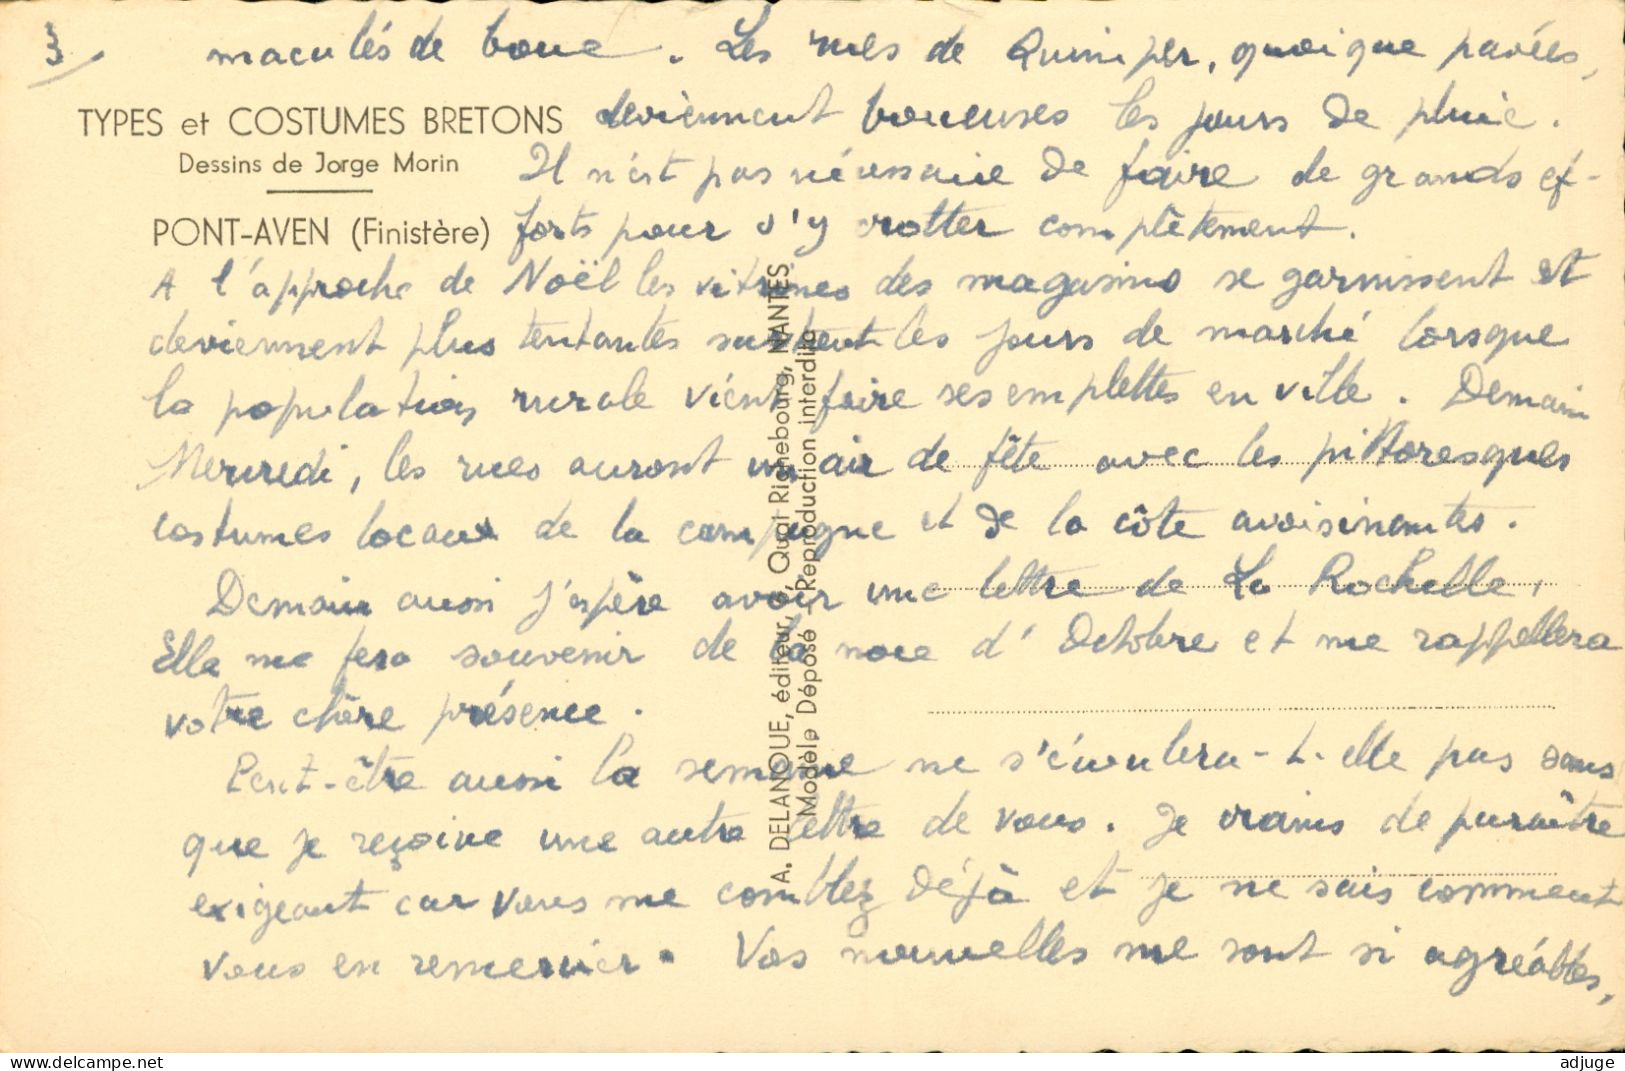 3/ maculés de boue. Les rues de Quimper, quoique pavées,
TYPES et COSTUMES BRETONS
Dessins de Jorge Morin
PONT-AVEN (Finistère)
deviennent boueuses les jours de pluie.
Il n'est pas nécessaire de faire de grands ef-
forts pour s'y crotter complètement.
A l'approche de Noël les vitrines des magasins se garnissent et
deviennent plus tentantes surtout les jours de marché lorsque
la population rurale vient faire ses emplettes en ville. Demain
Mercredi, les rues auront un air de fête avec les pittoresques
costumes locaux de la campagne et de la côte avoisinantes.
Demain aussi j'espère avoir une lettre de La Rochelle.
Elle me fera souvenir de la noce d'Octobre et me rappellera
votre chère présence.
Peut-être aussi la semaine ne s'écoulera-t-elle pas sans
que je reçoive une autre lettre de vous. Je crains de paraître
exigeant car vous me comblez déjà et je ne sais comment
vous en remercier. Vos nouvelles me sont si agréables,
A. DELANOUE, éditeur, Quai Richebourg, NANTES
Modèle Déposé - Reproduction interdite
adjuge